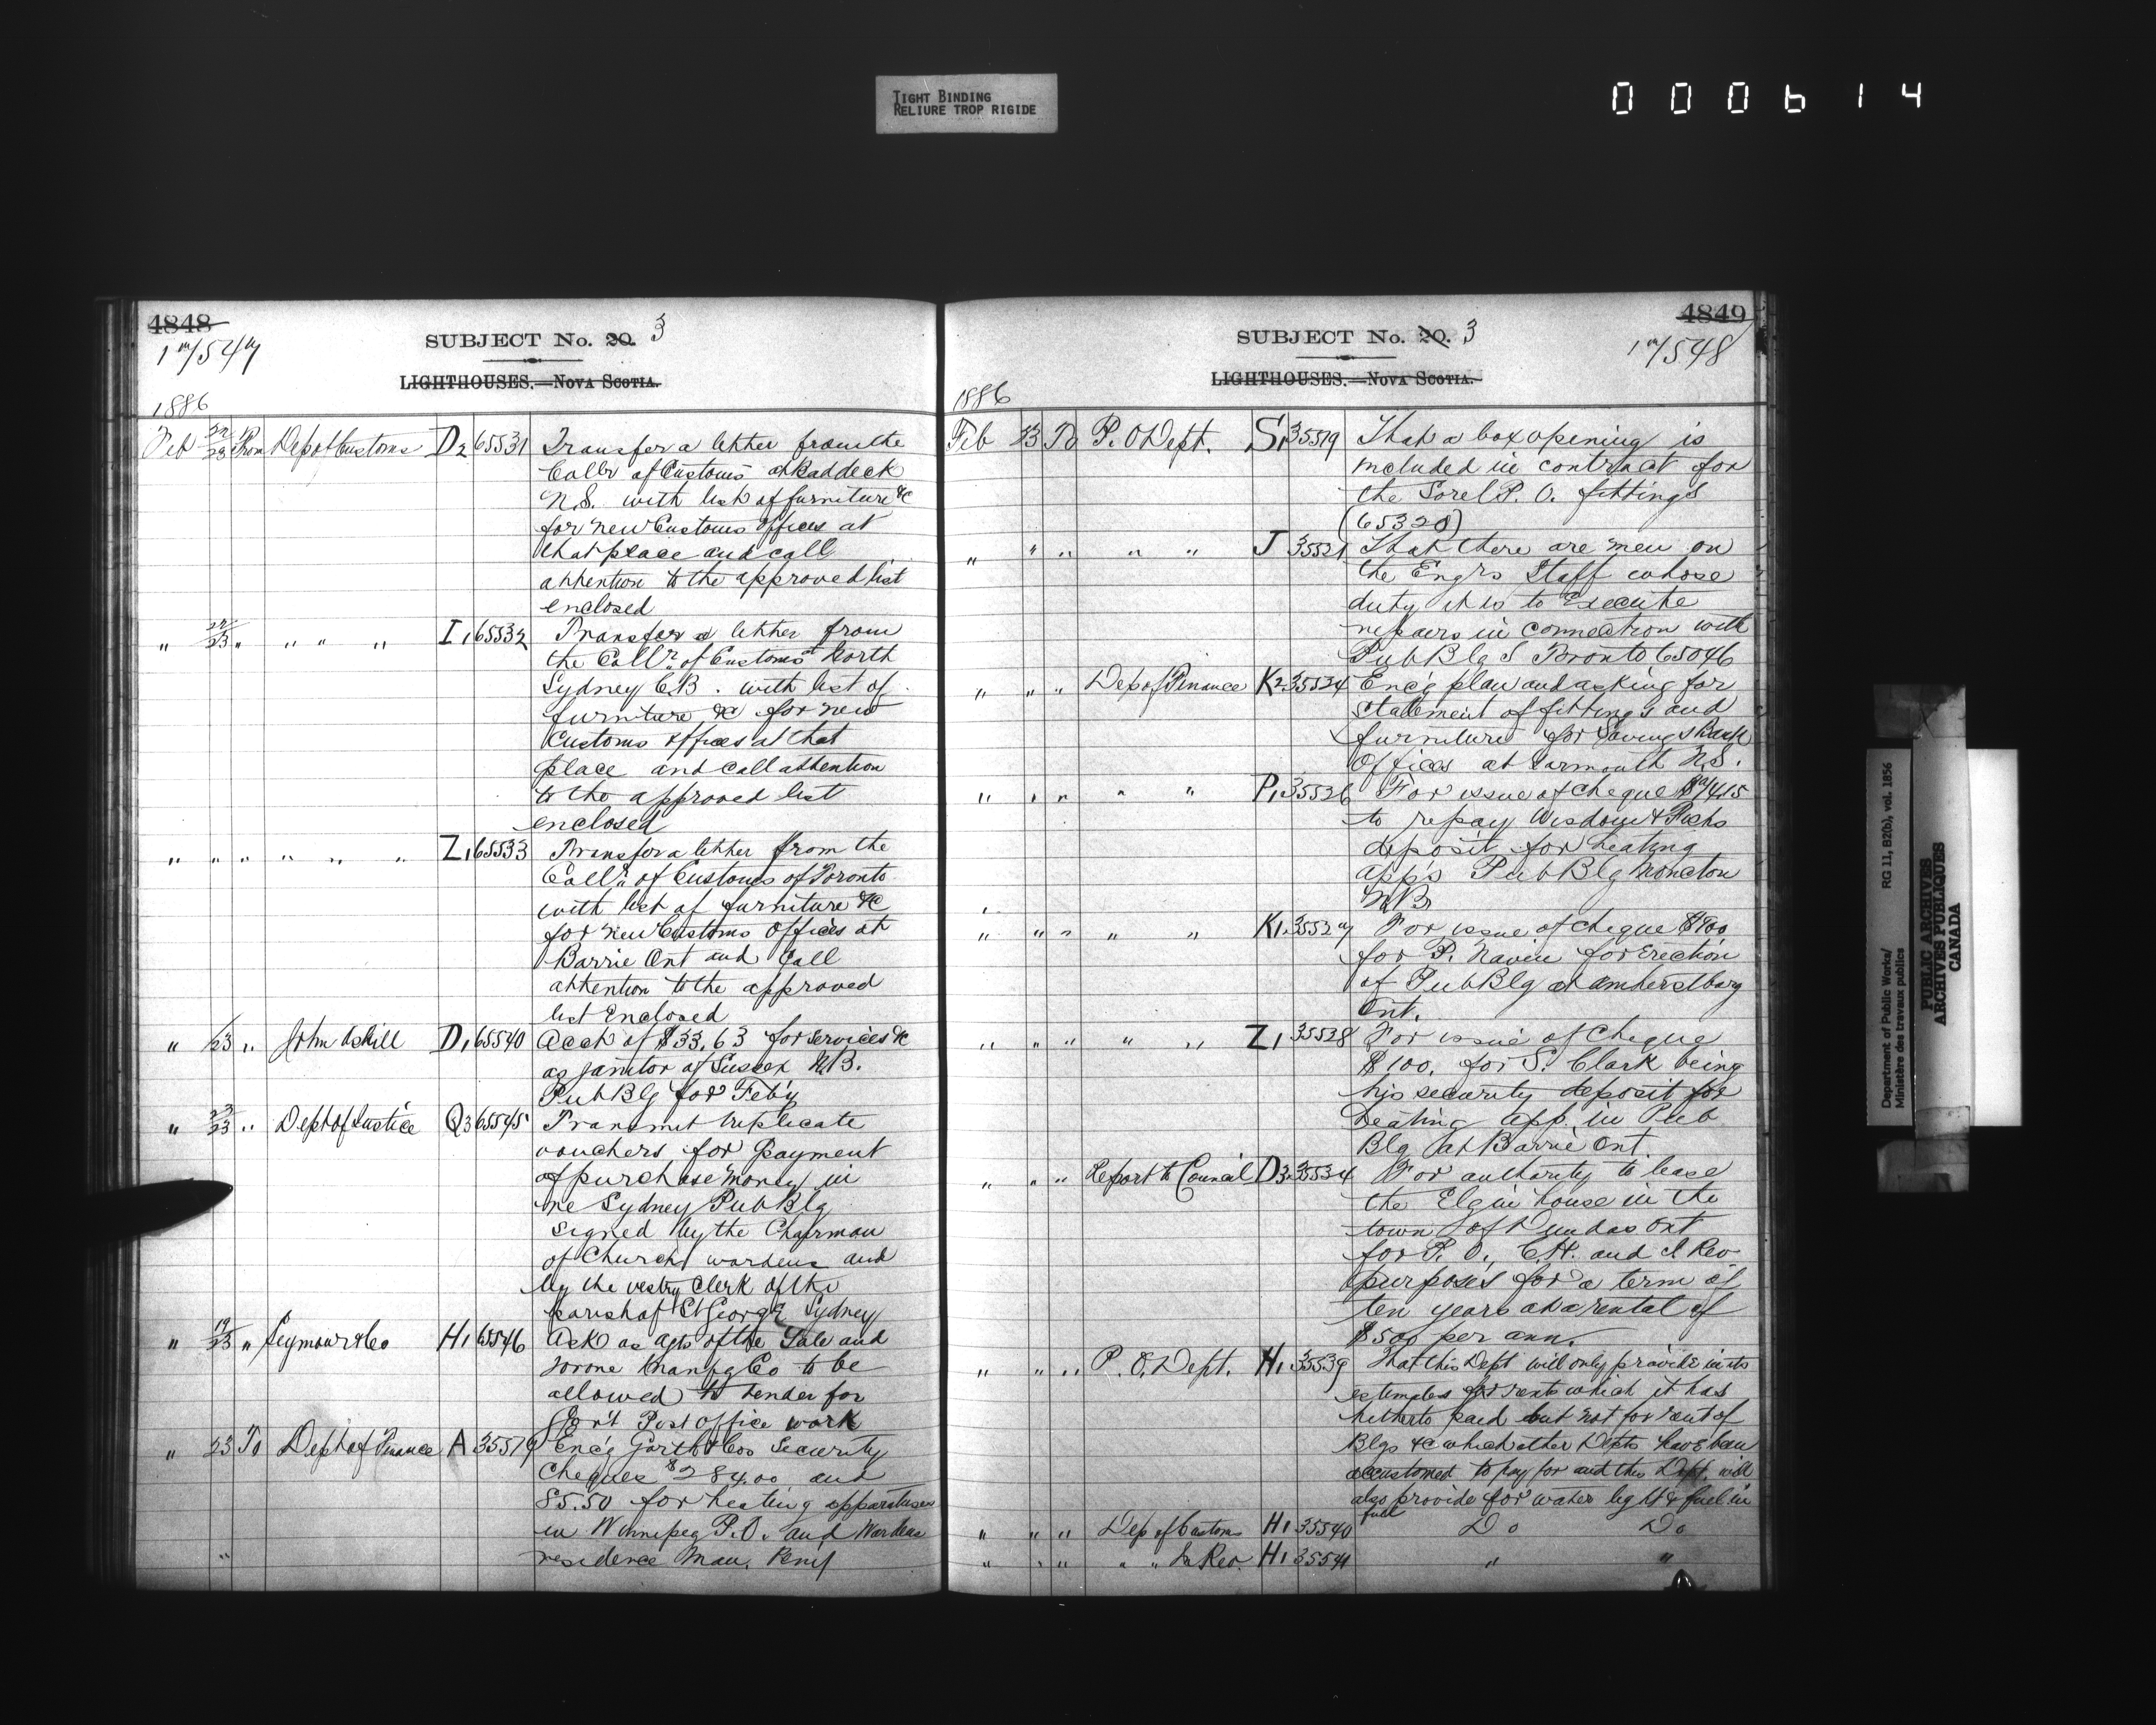 TIGHT BINDING
RELIURE TROP RIGIDE
000614
4848
1m/547
SUBJECT No. 20. 3
LIGHTHOUSES.—NOVA SCOTIA.
1886
Feb 22/23 From Dep of Customs D2 65531 Transfer a letter from the
Collr of Customs at Baddeck
N.S. with list of furniture &c
for new Customs offices at
that place and call
attention to the approved list
enclosed
" 22/23 " " " " I1 65532 Transfer a letter from
the Collr of Customs at North
Sydney C.B. with list of
furniture &c for new
Customs offices at that
place and call attention
to the approved list
enclosed
" " " " " " Z1 65533 Transfer a letter from the
Collr of Customs of Toronto
with list of furniture &c
for new Customs Offices at
Barrie Ont and Call
attention to the approved
list Enclosed
" /23 " John D1 65540 Acct of $33.63 for services &c
as janitor of Sussex N.B.
Pub Blg for Feby
" 23/23 " Dept of Justice Q3 65545 Transmit triplicate
vouchers for payment
of purchase money in
re Sydney Pub Blg
signed by the Chairman
of Church wardens and
by the vestry Clerk of the
parish of St George Sydney
" 19/23 " Seymour & Co H1 65546 Ask as agts of the Yale and
Towne Manfg Co to be
allowed to tender for
Gov't Post office work
" 23 To Dept of Finance A 35519 Enc'g Garth & Cos Security
Cheques $284.00 and
85.50 for heating apparatuses
in Winnipeg P.O. and Wardens
" residence Man. Peny
4849
1m/548
SUBJECT No. 20. 3
LIGHTHOUSES.—NOVA SCOTIA.
1886
Feb 23 To P. O Dept. S1 35519 That a box opening is
included in contract for
the Sorel P. O. fittings
(65328)
" " " " " J 35521 That there are men on
the Engrs Staff whose
duty it is to Execute
repairs in connection with
Pub Blgs Toronto 65046
" " " Dep of Finance K2 35524 Enc'g plan and asking for
Statement of fittings and
furniture for Savings Bank
Offices at Yarmouth N.S.
" " " " " P1 35526 For issue of cheque
to repay Wisdom & Fishs
deposit for heating
app's Pub Blg Moncton
N.B.
" " " " " K1 35527 For issue of cheque $900
for P. Navin for Erection
of Pub Blg at Amherstburg
Ont.
" " " " " Z1 35528 For issue of Cheque
$100. for S. Clark being
his security deposit for
heating app. in Pub
Blg at Barrie Ont
" " " Report to Council D3 35534 For authority to lease
the Elgin house in the
town of Dundas Ont
for P. O., C.H. and I. Rev
purposes for a term of
ten years at a rental of
$500 per ann.
" " " P. O. Dept. H1 35539 That this Dept will only provide in its
estimates for rents which it has
hitherto paid but not for rent of
Blgs &c which other Depts have been
accustomed to pay for and this Dept. will
also provide for water light & fuel in
full
" " " Dep of Customs H1 35540 Do Do
" " " " " In Rev. H1 35541 " "
Department of Public Works/ RG 11, B2(b), vol. 1856
Ministère des travaux publics
PUBLIC ARCHIVES
ARCHIVES PUBLIQUES
CANADA